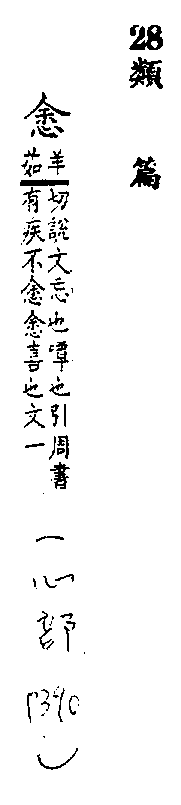 28類篇
悆
羊茹
切說文忘也嘾也引周書
有疾不悆悆喜也文一
(心部 P390)